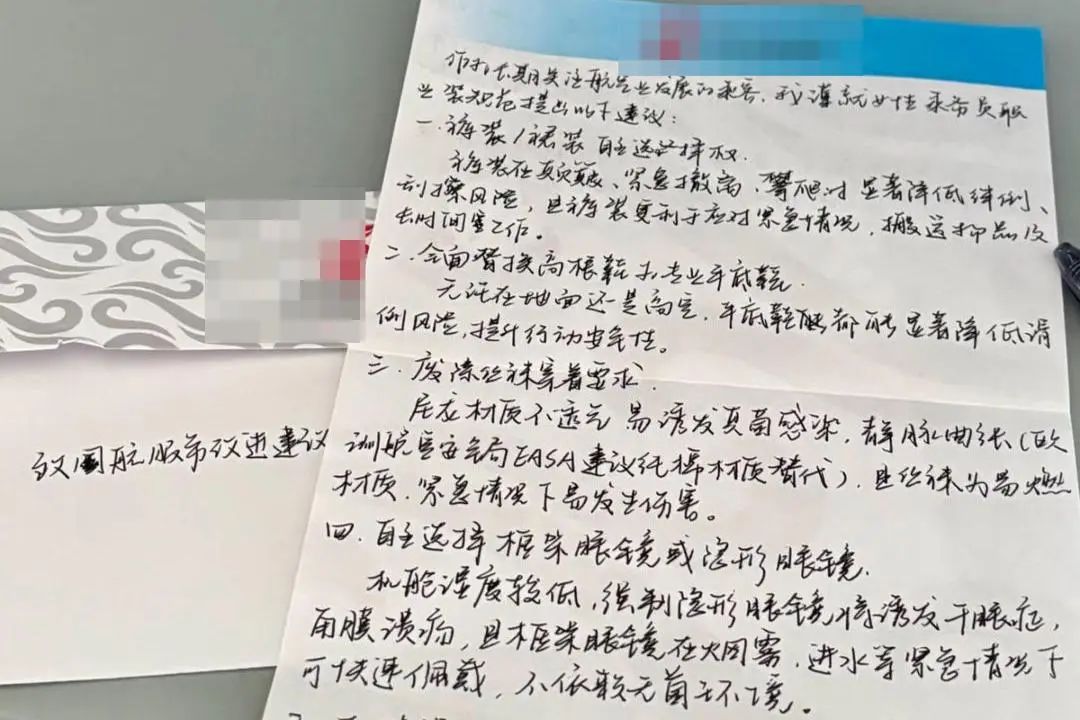 作为长期关注航空业发展的乘客，我谨就女性乘务员职
业装规范提出以下建议：
一.裤装/裙装自主选择权.
裤装在颠簸、紧急撤离、攀爬时显著降低绊倒、
刮擦风险，且裤装更利于应对紧急情况，搬运物品及
长时间工作。
二.全面替换高跟鞋为专业平底鞋.
无论在地面还是高空，平底鞋都能显著降低滑
倒风险，提升行动安全性。
三.废除丝袜穿着要求.
尼龙材质不透气易诱发真菌感染，静脉曲张（欧
洲航空安全局EASA建议纯棉材质替代），且丝袜为易燃
材质，紧急情况下易发生伤害。
四.自主选择框架眼镜或隐形眼镜.
机舱湿度较低，强制隐形眼镜将诱发干眼症，
角膜溃疡，且框架眼镜在烟雾，进水等紧急情况下
可快速佩戴，不依赖无菌环境。
致国航服饰改进建议